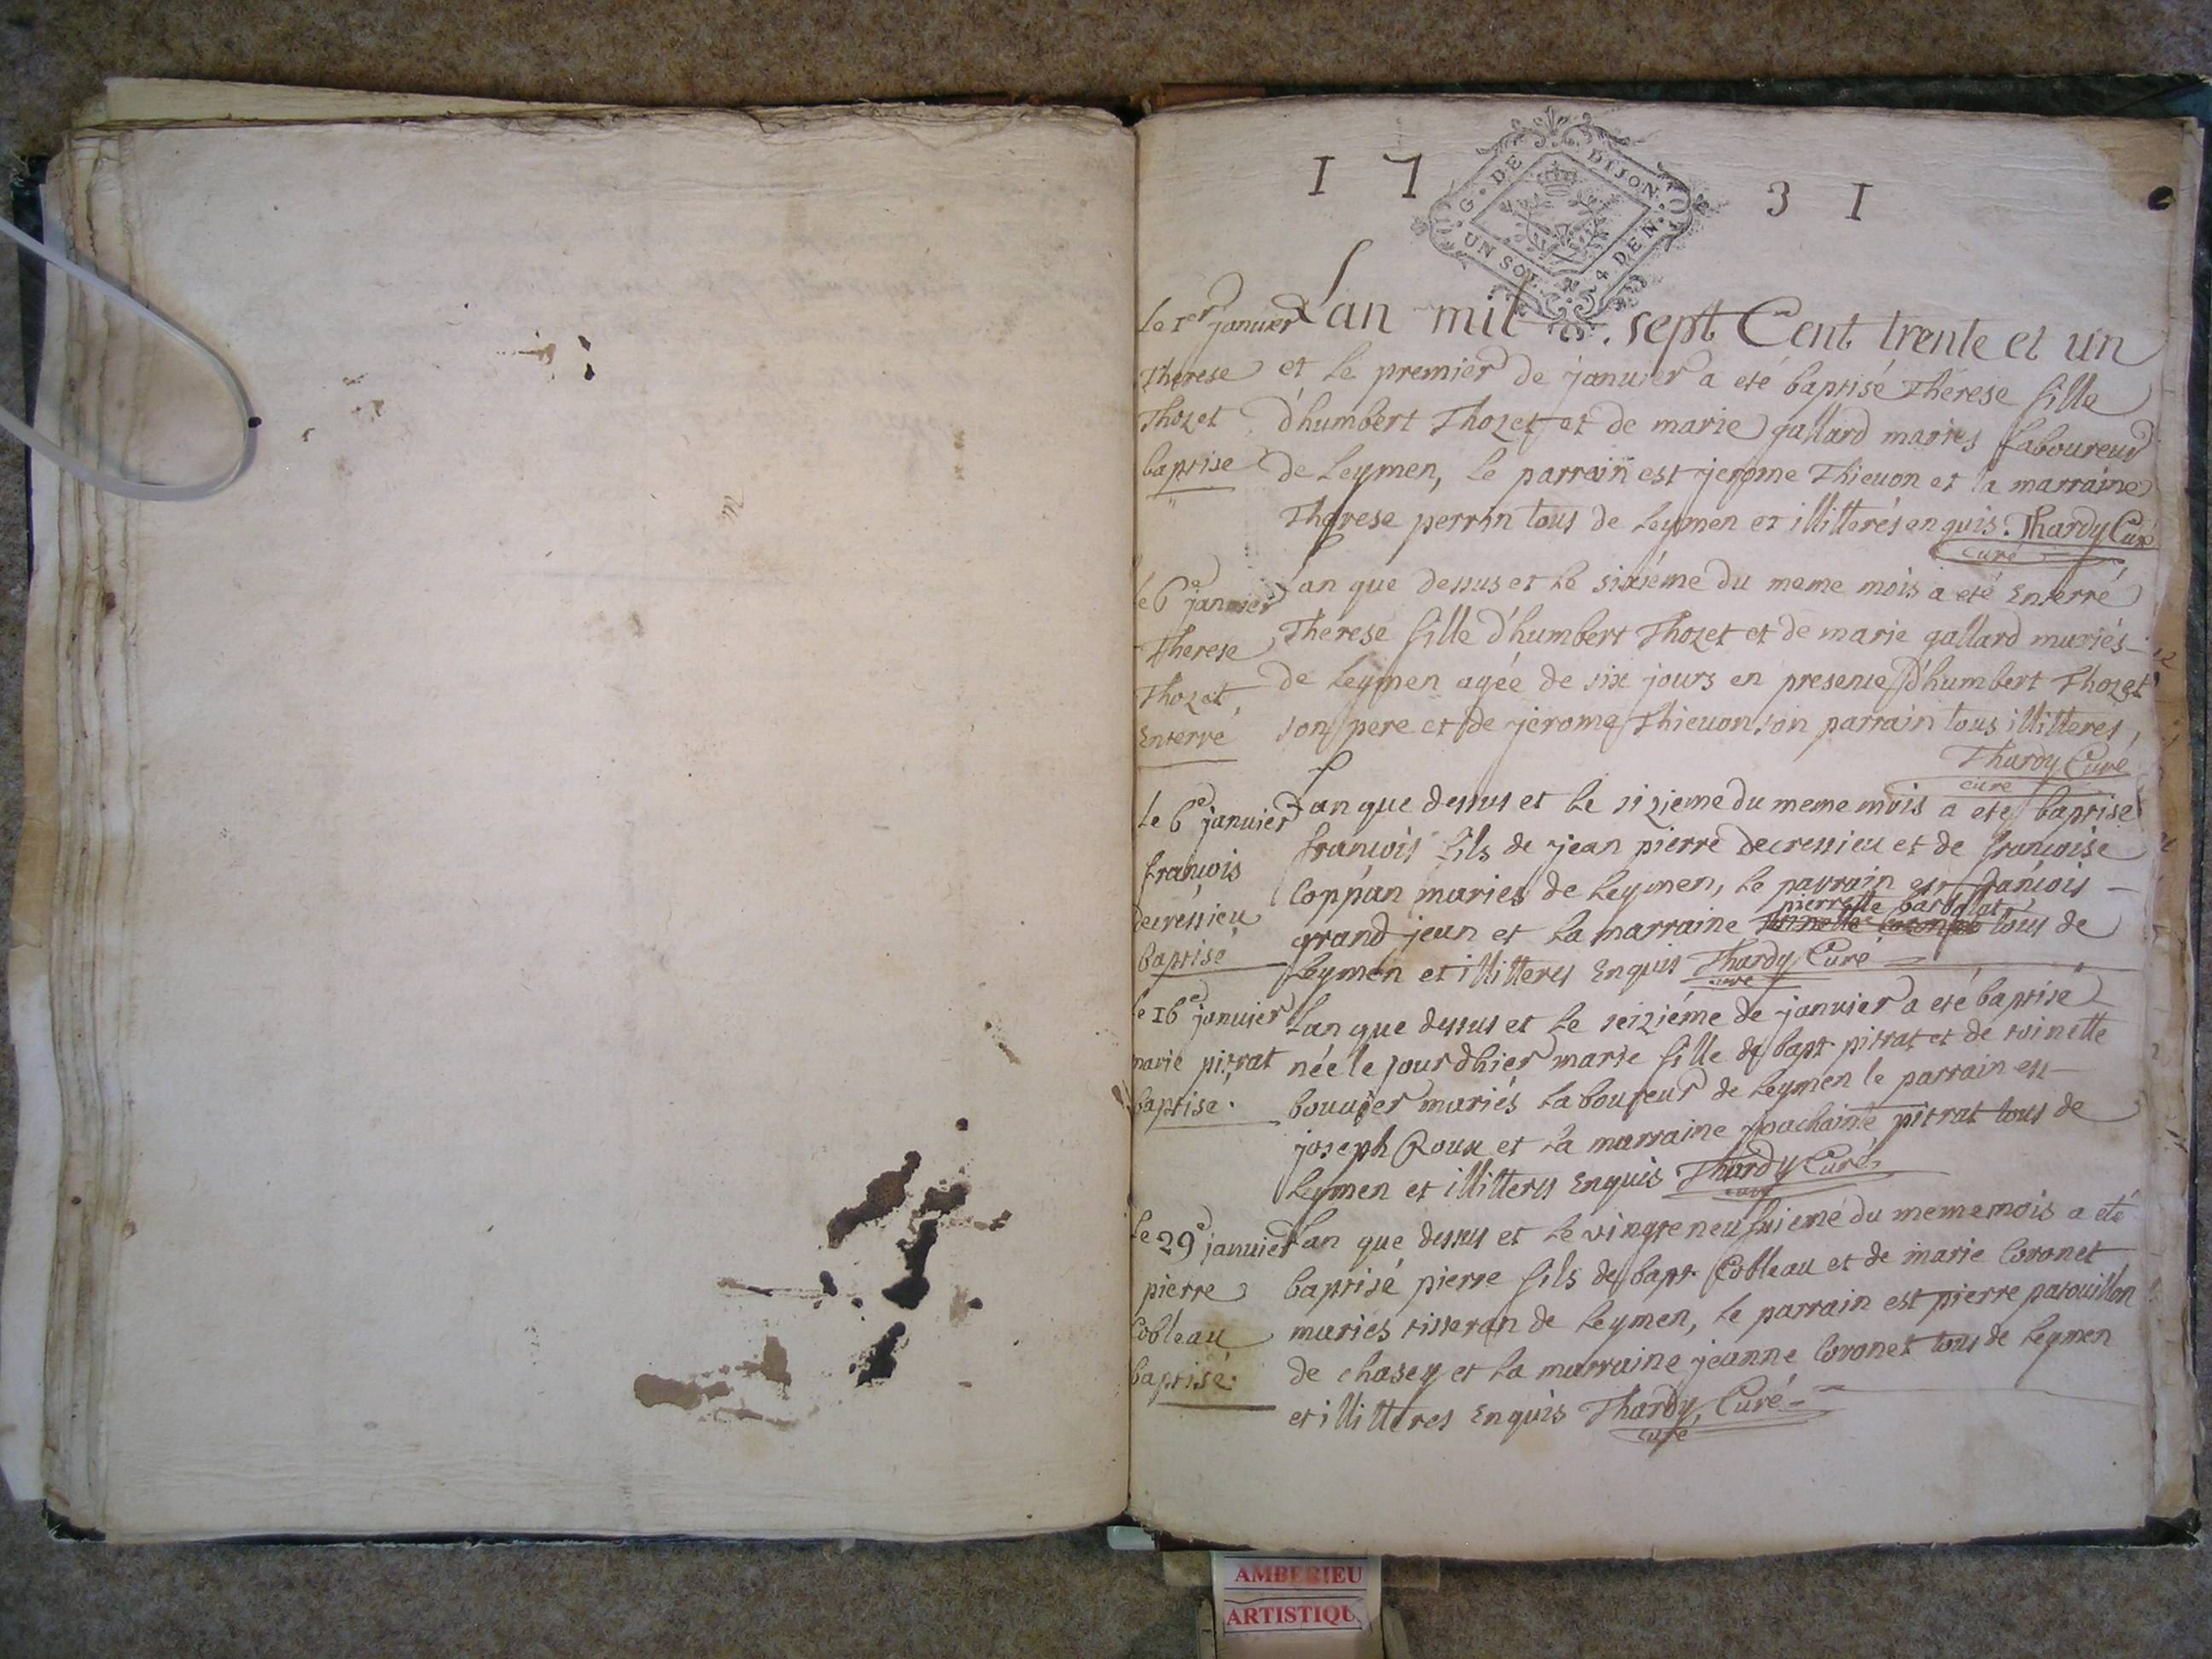 1 7 3 1
G. DE DIJON
UN SOL 4 DEN.
Le 1er janvier
Therese
Thozet
baptise
Lan mil sept Cent trente et un
et le premier de janvier a eté baptisé Therese fille
d'humbert Thozet et de marie gallard mariés laboureur
de Leymen, le parrain est jerome Thievon et la marraine
Therese perrin tous de Leymen et illitterés enquis. Thardy Curé
curé
le 6e janvier
Therese
Thozet
Enterré
Lan que dessus et le sixiéme du meme mois a eté Enterré
Therese fille d'humbert Thozet et de marie gallard mariés
de Leymen agée de six jours en presence d'humbert Thozet
son pere et de jerome Thievon son parrain tous illitteres,
Thardy Curé
curé
Le 6e janvier
françois
decressieu
baptisé
Lan que dessus et le sizieme du meme mois a eté baptisé
françois fils de jean pierre decressieu et de françoise
Coppan maries de Leymen, le parrain est françois
pierrette barbolat
grand jean et la marraine tous de
Leymen et illitteres Enquis Thardy Curé
curé
le 16e janvier
marie pitrat
baptisé.
Lan que dessus et le seiziéme de janvier a eté baptisé
née le jour d'hier marie fille de bapt pitrat et de toinette
bouvier mariés laboureur de Leymen le parrain est
joseph Roux et la marraine pitrat tous de
Leymen et illitteres Enquis Thardy Curé
curé
le 29e janvier
pierre
Cobleau
baptisé.
Lan que dessus et le vingte neufuieme du meme mois a eté
baptisé pierre fils de bapt. Cobleau et de marie Coronet
mariés tisseran de Leymen, le parrain est pierre patouillon
de chasey et la marraine jeanne Coronet tous de Leymen
et illitteres Enquis Thardy, Curé
curé
AMBERIEU
ARTISTIQU